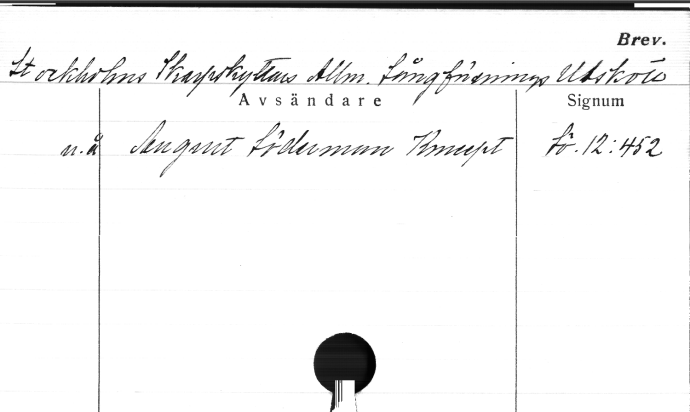 Brev.
Stockholms Skarpskyttars Allm. Sångförenings Utskott
Avsändare Signum
u.å August Söderman Koncept Sö. 12:452